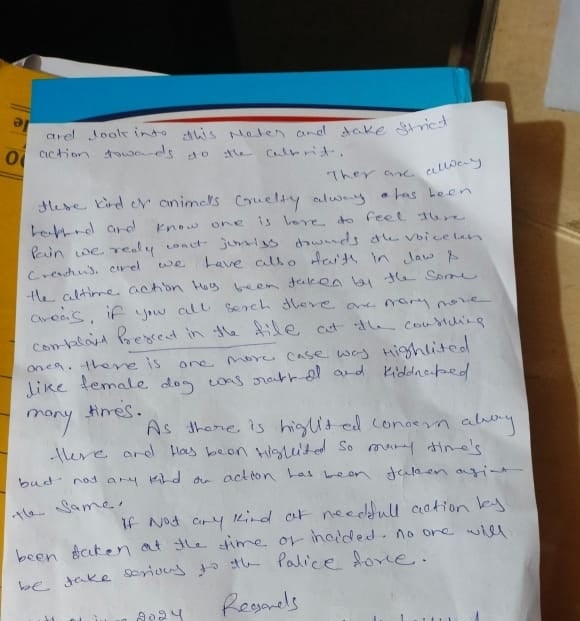 and look into this Mater and take Strict
action towards to the culbrit.
Ther are allway
these kind of animals cruelty alway has been
happend and know one is here to feel there
Pain we realy want jurriss towards the voicelen
Creatus. and we have also faith in law &
the altime action has been taken by the Same
areas, if you all serch there are many more
complaint Present in the file at the considring
area. there is one more case was Highlited
like female dog was and kiddneped
many times.
As there is higlited concern alway
there and Has been Higlited so many time's
but not any kind on action has been taken agint
the Same.
If Not any kind of needfull action kes
been taken at the time of incided. no one will
be take serious to the Police force.
2024 Regards